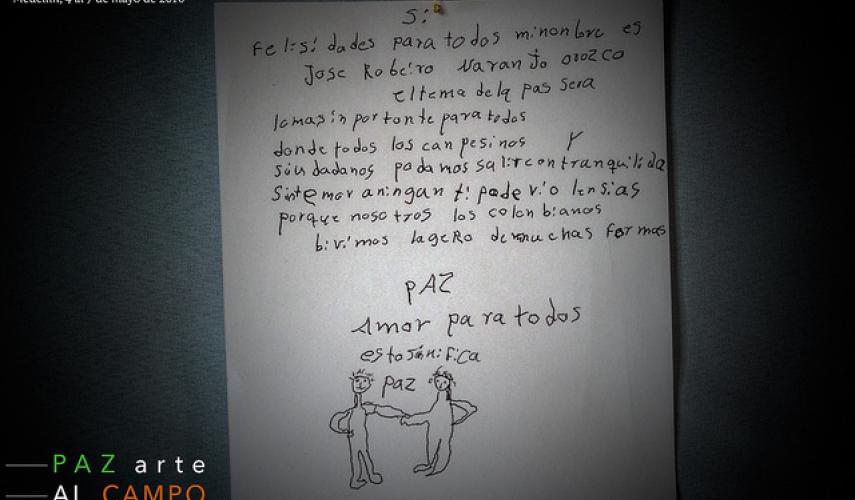 Medellín, 4 al 7 de mayo de 2016
S:
Felisidades para todos minonbre es
Jose Robeiro Naranjo orozco
eltema dela pas sera
lomasinportante para todos
donde todos los canpesinos y
siudadanos podanos salir contranquilida
Sintemor aningan ti pode violensias
porque nosotros los colonbianos
bivimos lageRo demuchas formas
PAZ
Amor para todos
esto sinifica
paz
PAZ arte
AL CAMPO